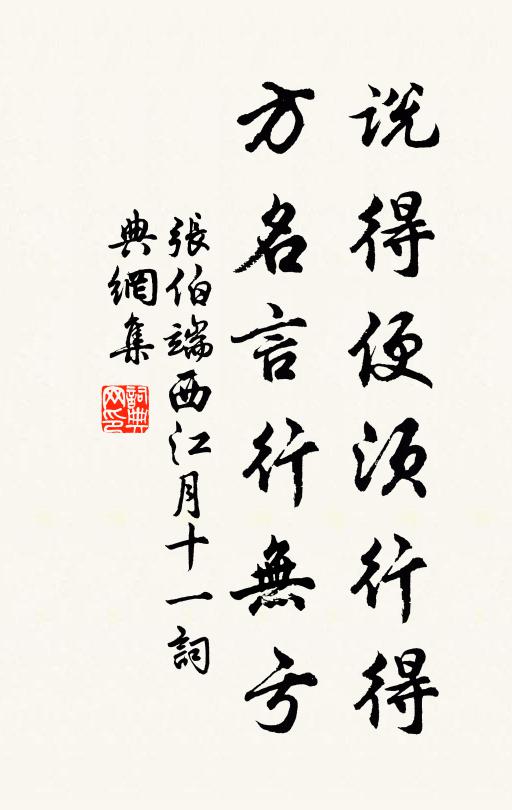 说得便须行得
方名言行無亏
張伯端西江月十一詞
典網集
詞典網印